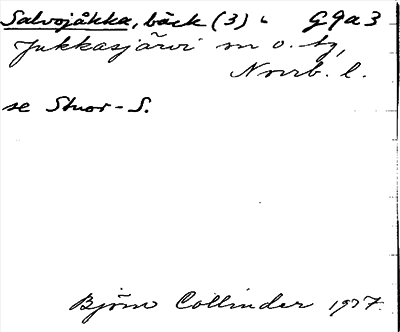 Salvojåkka, bäck (3) G9a3
Jukkasjärvi sn o. tg,
Norrb. l.
se Stuor-S.
Björn Collinder 1927.